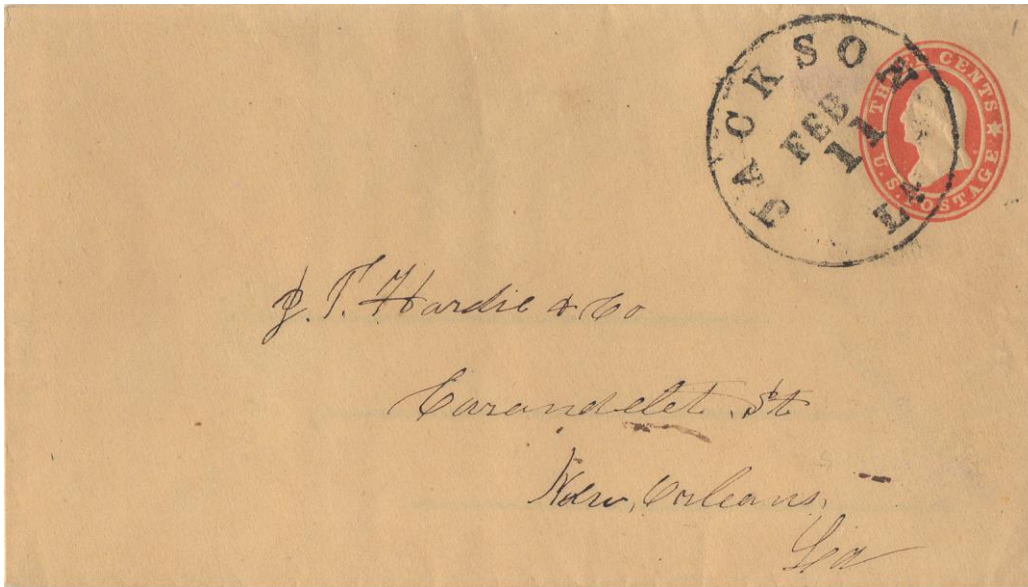 JACKSON
FEB
11
THREE CENTS
U.S. POSTAGE
J. T. Hardie & Co
Carandelet St
New, Orleans,
La